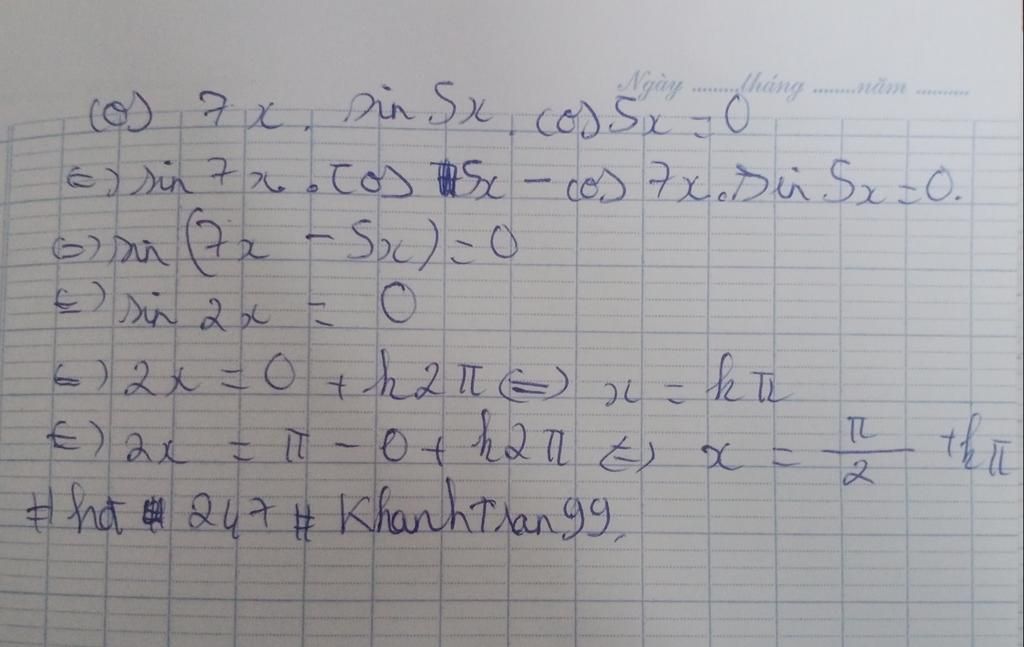 Ngày .........tháng ........năm ..........
cos 7x. sin 5x. cos 5x = 0
<=> sin 7x. cos 5x - cos 7x. sin 5x = 0.
<=> sin (7x - 5x) = 0
<=> sin 2x = 0
<=> 2x = 0 + k2π <=> x = kπ
<=> 2x = π - 0 + k2π <=> x = π/2 + kπ
# hđ # 247 # KhanhTran99.